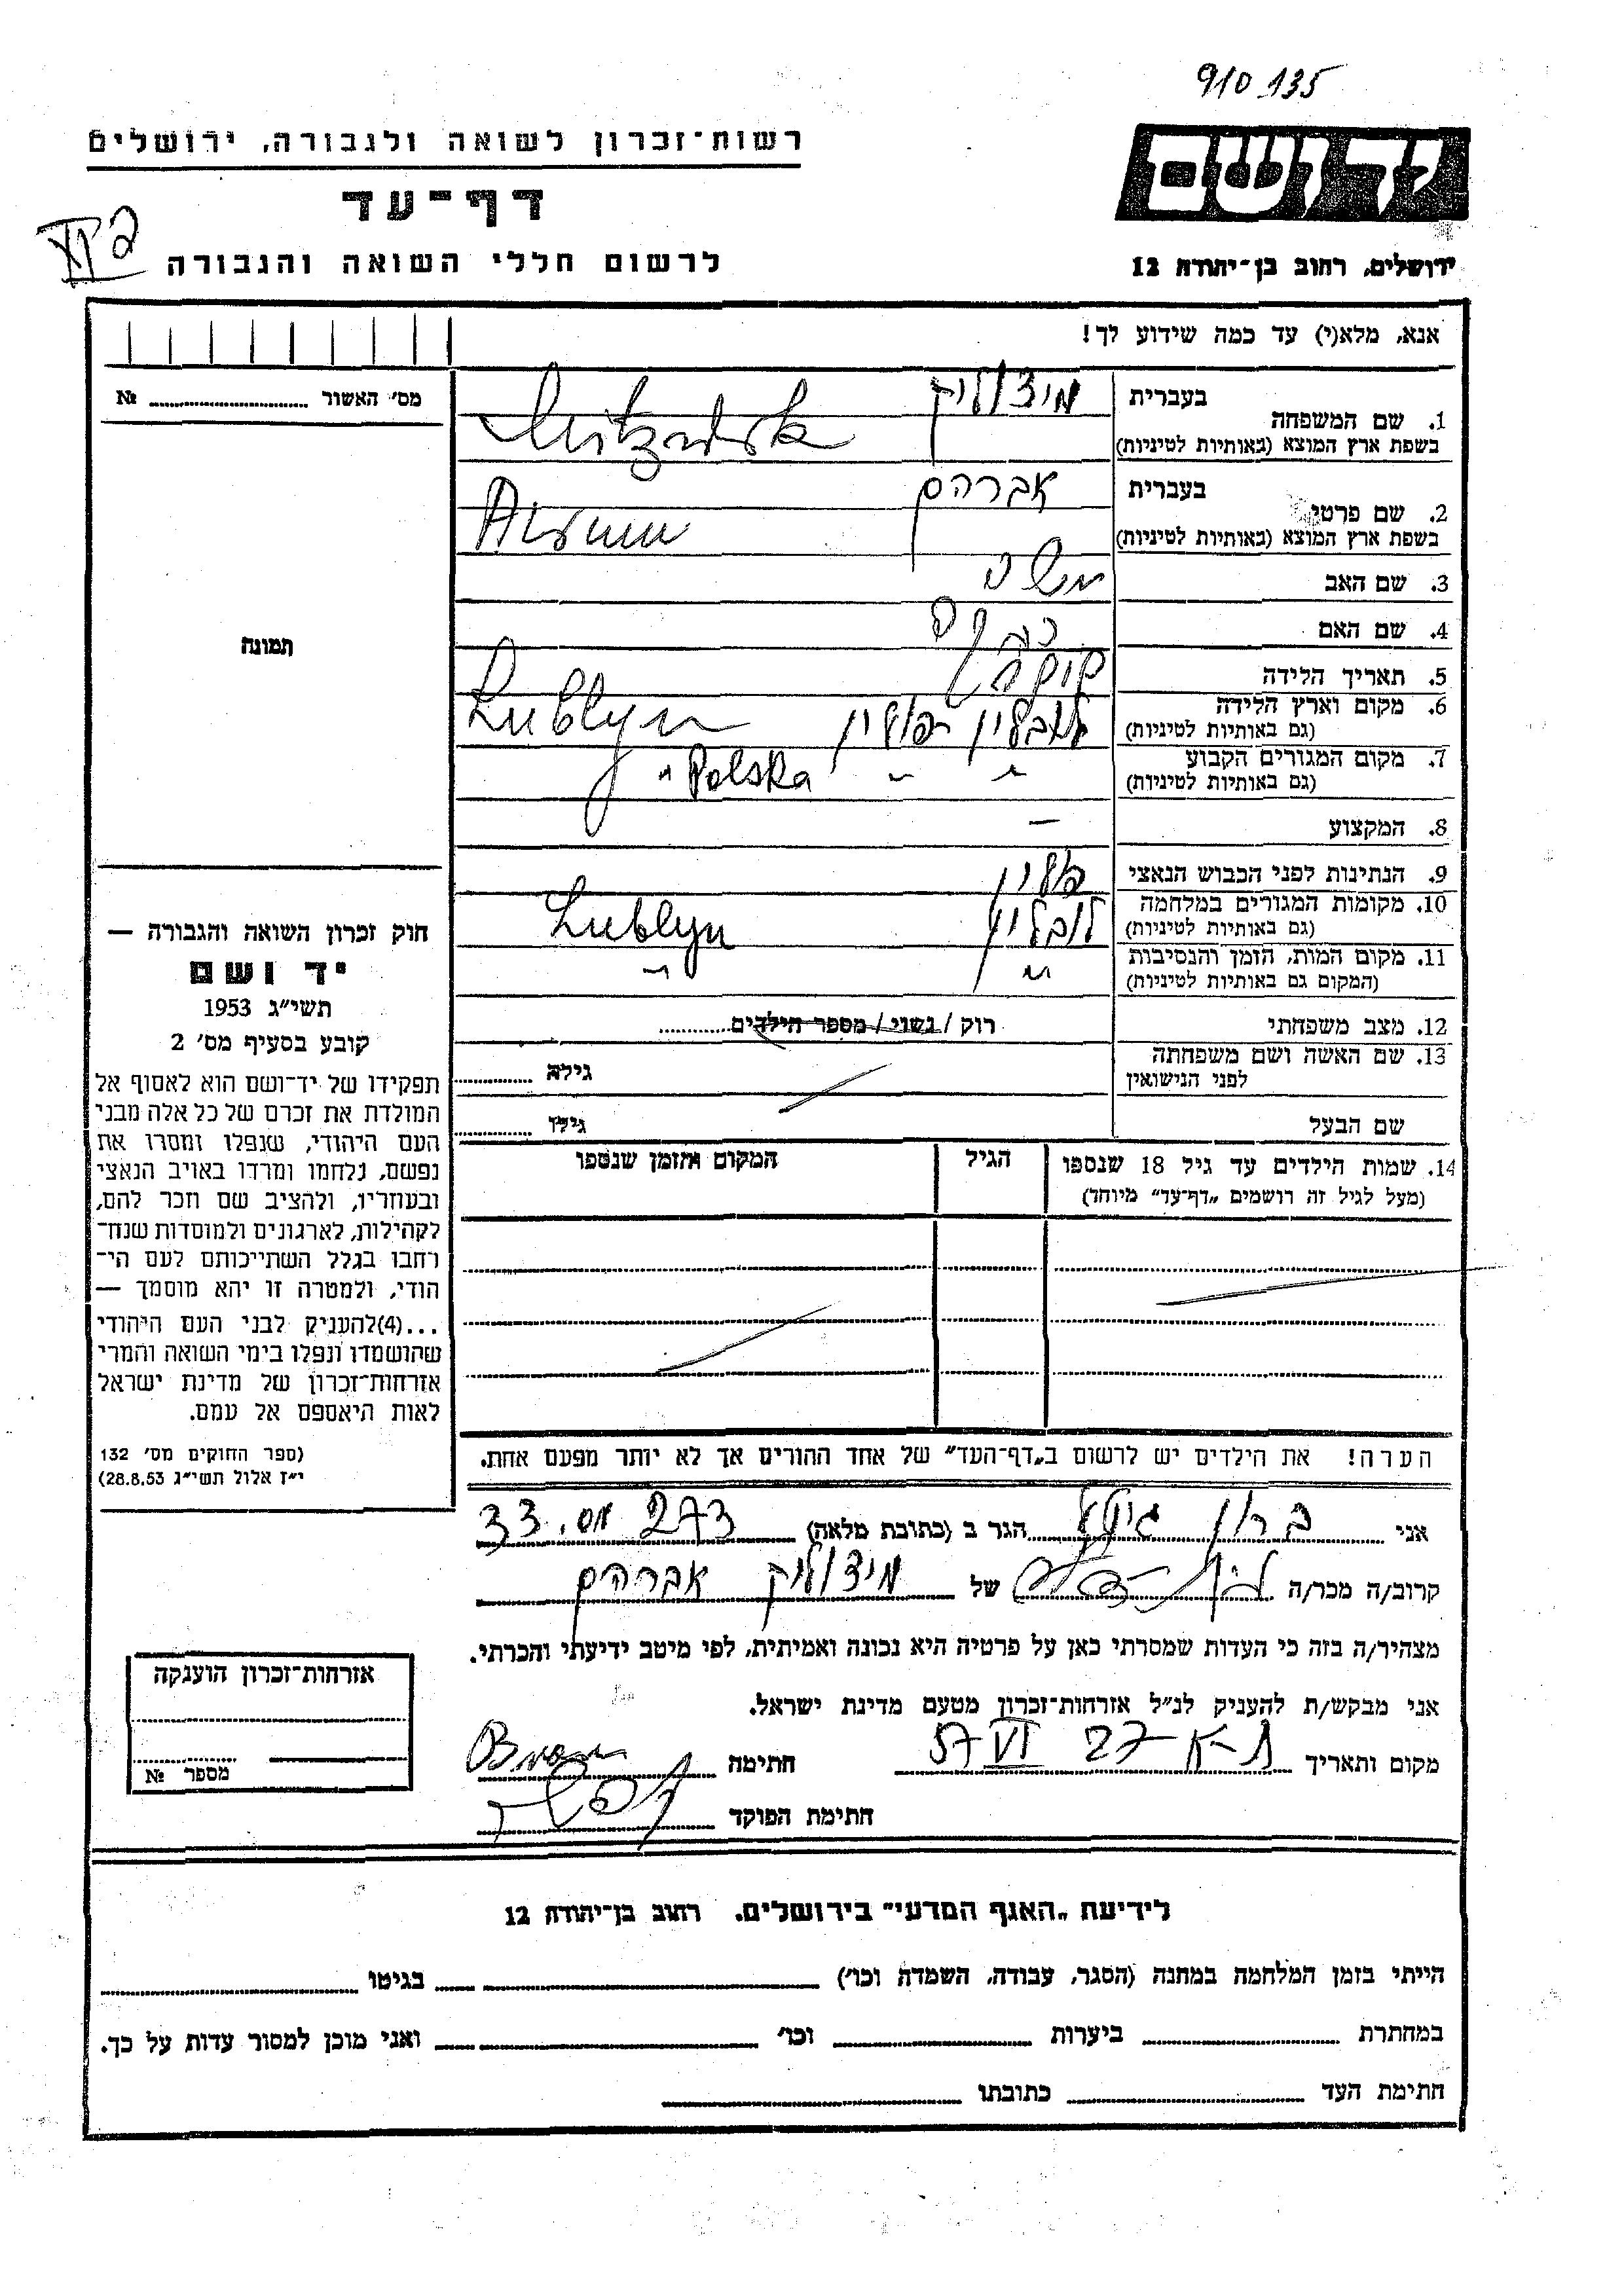 910 135
יד ושם
רשות־זכרון לשואה ולגבורה, ירושלים
דף־עד
לרשום חללי השואה והגבורה
ירושלים, רחוב בן־יהודה 12
אנא, מלא(י) עד כמה שידוע לך!
מס׳ האשור № 
תמונה
1. שם המשפחה בעברית
בשפת ארץ המוצא (באותיות לטיניות)
2. שם פרטי בעברית אברהם
בשפת ארץ המוצא (באותיות לטיניות)
3. שם האב משה
4. שם האם
5. תאריך הלידה
6. מקום וארץ הלידה לובלין פולין Lublyn
(גם באותיות לטיניות)
7. מקום המגורים הקבוע " " Polska "
(גם באותיות לטיניות)
8. המקצוע —
9. הנתינות לפני הכבוש הנאצי פולין
10. מקומות המגורים במלחמה לובלין Lublyn
(גם באותיות לטיניות)
11. מקום המות, הזמן והנסיבות " "
(המקום גם באותיות לטיניות)
12. מצב משפחתי רוק / נשוי / מספר הילדים
13. שם האשה ושם משפחתה גילה
לפני הנישואין
שם הבעל גילו
14. שמות הילדים עד גיל 18 שנספו הגיל המקום והזמן שנספו
(מעל לגיל זה רושמים „דף־עד” מיוחד)
הערה! את הילדים יש לרשום ב„דף־העד” של אחד ההורים אך לא יותר מפעם אחת.
חוק זכרון השואה והגבורה —
יד ושם
תשי״ג 1953
קובע בסעיף מס׳ 2
תפקידו של יד־ושם הוא לאסוף אל
המולדת את זכרם של כל אלה מבני
העם היהודי, שנפלו ומסרו את
נפשם, נלחמו ומרדו באויב הנאצי
ובעוזריו, ולהציב שם וזכר להם,
לקהילות, לארגונים ולמוסדות שנח־
רבו בגלל השתייכותם לעם הי־
הודי, ולמטרה זו יהא מוסמך —
...(4)להעניק לבני העם היהודי
שהושמדו ונפלו בימי השואה והמרי
אזרחות־זכרון של מדינת ישראל
לאות היאספם אל עמם.
(ספר החוקים מס׳ 132
י״ז אלול תשי״ג 28.8.53)
אני ברון הגר ב (כתובת מלאה) 273 מס. 33
קרוב/ה מכר/ה של אברהם
מצהיר/ה בזה כי העדות שמסרתי כאן על פרטיה היא נכונה ואמיתית, לפי מיטב ידיעתי והכרתי.
אני מבקש/ת להעניק לנ״ל אזרחות־זכרון מטעם מדינת ישראל.
מקום ותאריך ת־א 27 VI 57 חתימה
חתימת הפוקד
אזרחות־זכרון הוענקה
מספר №
לידיעת „האגף המדעי” בירושלים, רחוב בן־יהודה 12
הייתי בזמן המלחמה במחנה (הסגר, עבודה, השמדה וכו׳) בגיטו
במחתרת ביערות וכו׳ ואני מוכן למסור עדות על כך.
חתימת העד כתובתו